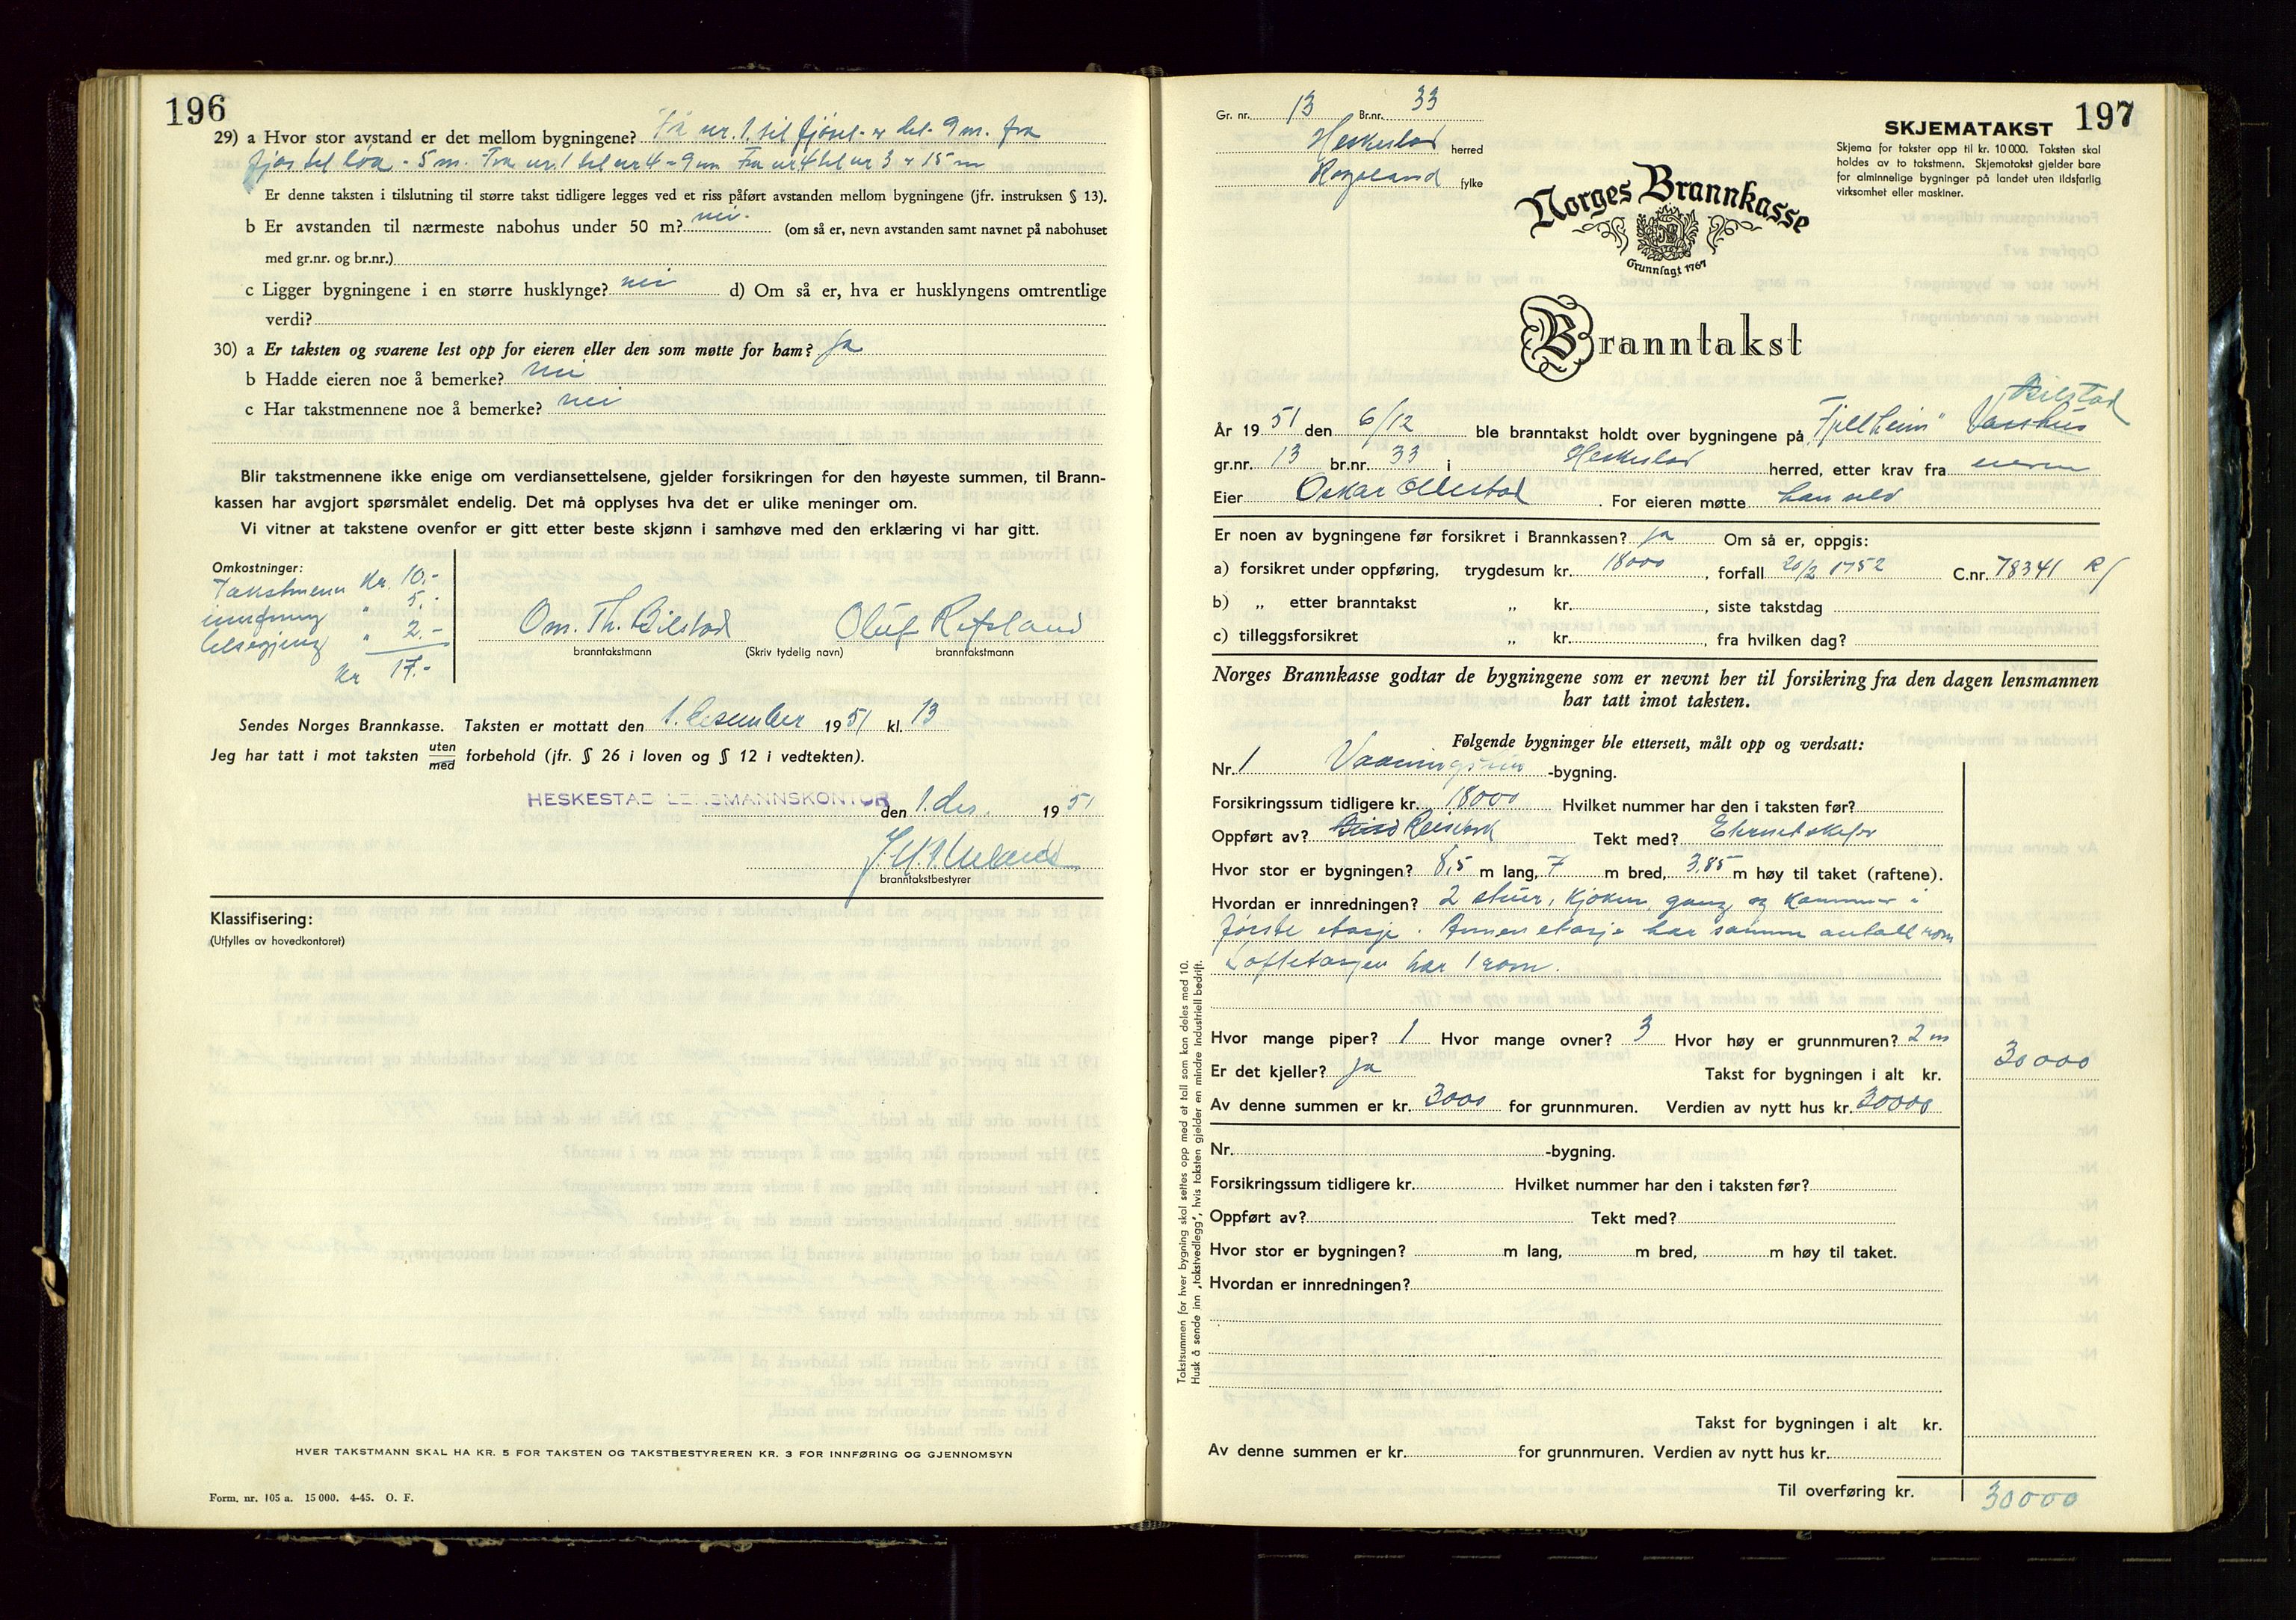 196
29) a Hvor stor avstand er det mellom bygningene? Frå nr. 1. til fjöset er det 9 m. fra
fjøs til löa - 5 m. Fra nr. 1 til nr 4 - 9 m Fra nr 4 til nr 3 - 15 m
Er denne taksten i tilslutning til større takst tidligere legges ved et riss påført avstanden mellom bygningene (jfr. instruksen § 13).
b Er avstanden til nærmeste nabohus under 50 m? nei. (om så er, nevn avstanden samt navnet på nabohuset
med gr.nr. og br.nr.)
c Ligger bygningene i en større husklynge? nei d) Om så er, hva er husklyngens omtrentlige
verdi?
30) a Er taksten og svarene lest opp for eieren eller den som møtte for ham? ja
b Hadde eieren noe å bemerke? nei
c Har takstmennene noe å bemerke? nei
Blir takstmennene ikke enige om verdiansettelsene, gjelder forsikringen for den høyeste summen, til Brann-
kassen har avgjort spørsmålet endelig. Det må opplyses hva det er ulike meninger om.
Vi vitner at takstene ovenfor er gitt etter beste skjønn i samhøve med den erklæring vi har gitt.
Omkostninger:
Takstmenn Kr. 10.-
" 5.-
" 2.-
Kr 17.-
Om. Th. Bilstad Oluf Refsland
branntakstmann (Skriv tydelig navn) branntakstmann
Sendes Norges Brannkasse. Taksten er mottatt den 1. desember 1951 kl. 13
Jeg har tatt i mot taksten uten/med forbehold (jfr. § 26 i loven og § 12 i vedtekten).
HESKESTAD LENSMANNSKONTOR den 1. des. 1951
branntakstbestyrer
Klassifisering:
(Utfylles av hovedkontoret)
HVER TAKSTMANN SKAL HA KR. 5 FOR TAKSTEN OG TAKSTBESTYREREN KR. 3 FOR INNFØRING OG GJENNOMSYN
Form. nr. 105 a. 15 000. 4-45. O. F.
Gr. nr. 13 Br.nr. 33
Heskestad herred
Rogaland fylke
SKJEMATAKST 197
Skjema for takster opp til kr. 10 000. Taksten skal
holdes av to takstmenn. Skjematakst gjelder bare
for alminnelige bygninger på landet uten ildsfarlig
virksomhet eller maskiner.
Norges Brannkasse
Grunnlagt 1767
Branntakst
Bilstad
År 1951 den 6/12 ble branntakst holdt over bygningene på "Fjellheim"
gr.nr. 13 br.nr. 33 i Heskestad herred, etter krav fra eieren
Eier Oskar Ollestad. For eieren møtte han selv
Er noen av bygningene før forsikret i Brannkassen? ja Om så er, oppgis:
a) forsikret under oppføring, trygdesum kr. 18000, forfall 20/2 1952 C.nr. 78341 R/
b) „ etter branntakst „ kr. , siste takstdag
c) tilleggsforsikret „ kr. , fra hvilken dag?
Norges Brannkasse godtar de bygningene som er nevnt her til forsikring fra den dagen lensmannen
har tatt imot taksten.
Følgende bygninger ble ettersett, målt opp og verdsatt:
Nr. 1 Vaaningshus -bygning.
Forsikringssum tidligere kr. 18000 Hvilket nummer har den i taksten før?
Oppført av? Reisverk Tekt med? Eternitskifer
Hvor stor er bygningen? 8,5 m lang, 7 m bred, 3,85 m høy til taket (raftene).
Hvordan er innredningen? 2 stuer, kjøken, gang og kammer i
første etasje. Annen etasje har samme antall rom
Loftetasjen har 1 rom.
Hvor mange piper? 1 Hvor mange ovner? 3 Hvor høy er grunnmuren? 2 m
Er det kjeller? ja Takst for bygningen i alt kr. 30000
Av denne summen er kr. 3000 for grunnmuren. Verdien av nytt hus kr. 30000
Nr. -bygning.
Forsikringssum tidligere kr. Hvilket nummer har den i taksten før?
Oppført av? Tekt med?
Hvor stor er bygningen? m lang, m bred, m høy til taket.
Hvordan er innredningen?
Takst for bygningen i alt kr.
Av denne summen er kr. for grunnmuren. Verdien av nytt hus kr.
Til overføring kr. 30000
Takstsummen for hver bygning skal settes opp med et tall som kan deles med 10.
Husk å sende inn „takstvedlegg", hvis taksten gjelder en mindre industriell bedrift.